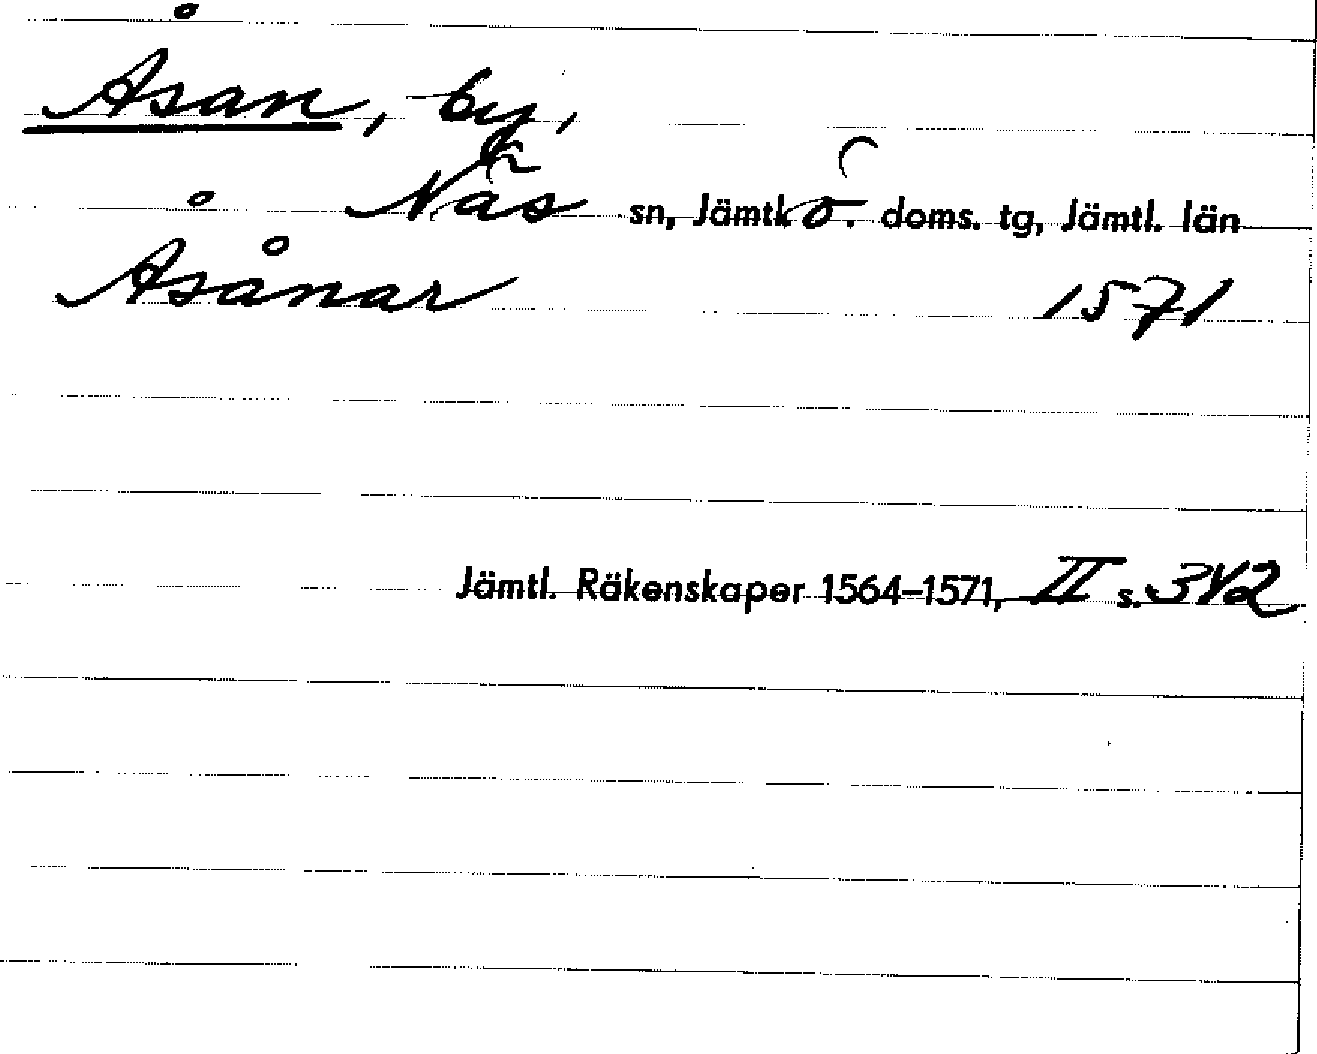 Åsan, by,
Näs sn, Jämtl. ö. doms. tg, Jämtl. län
Åsånar 1571
Jämtl. Räkenskaper 1564–1571, II s. 342